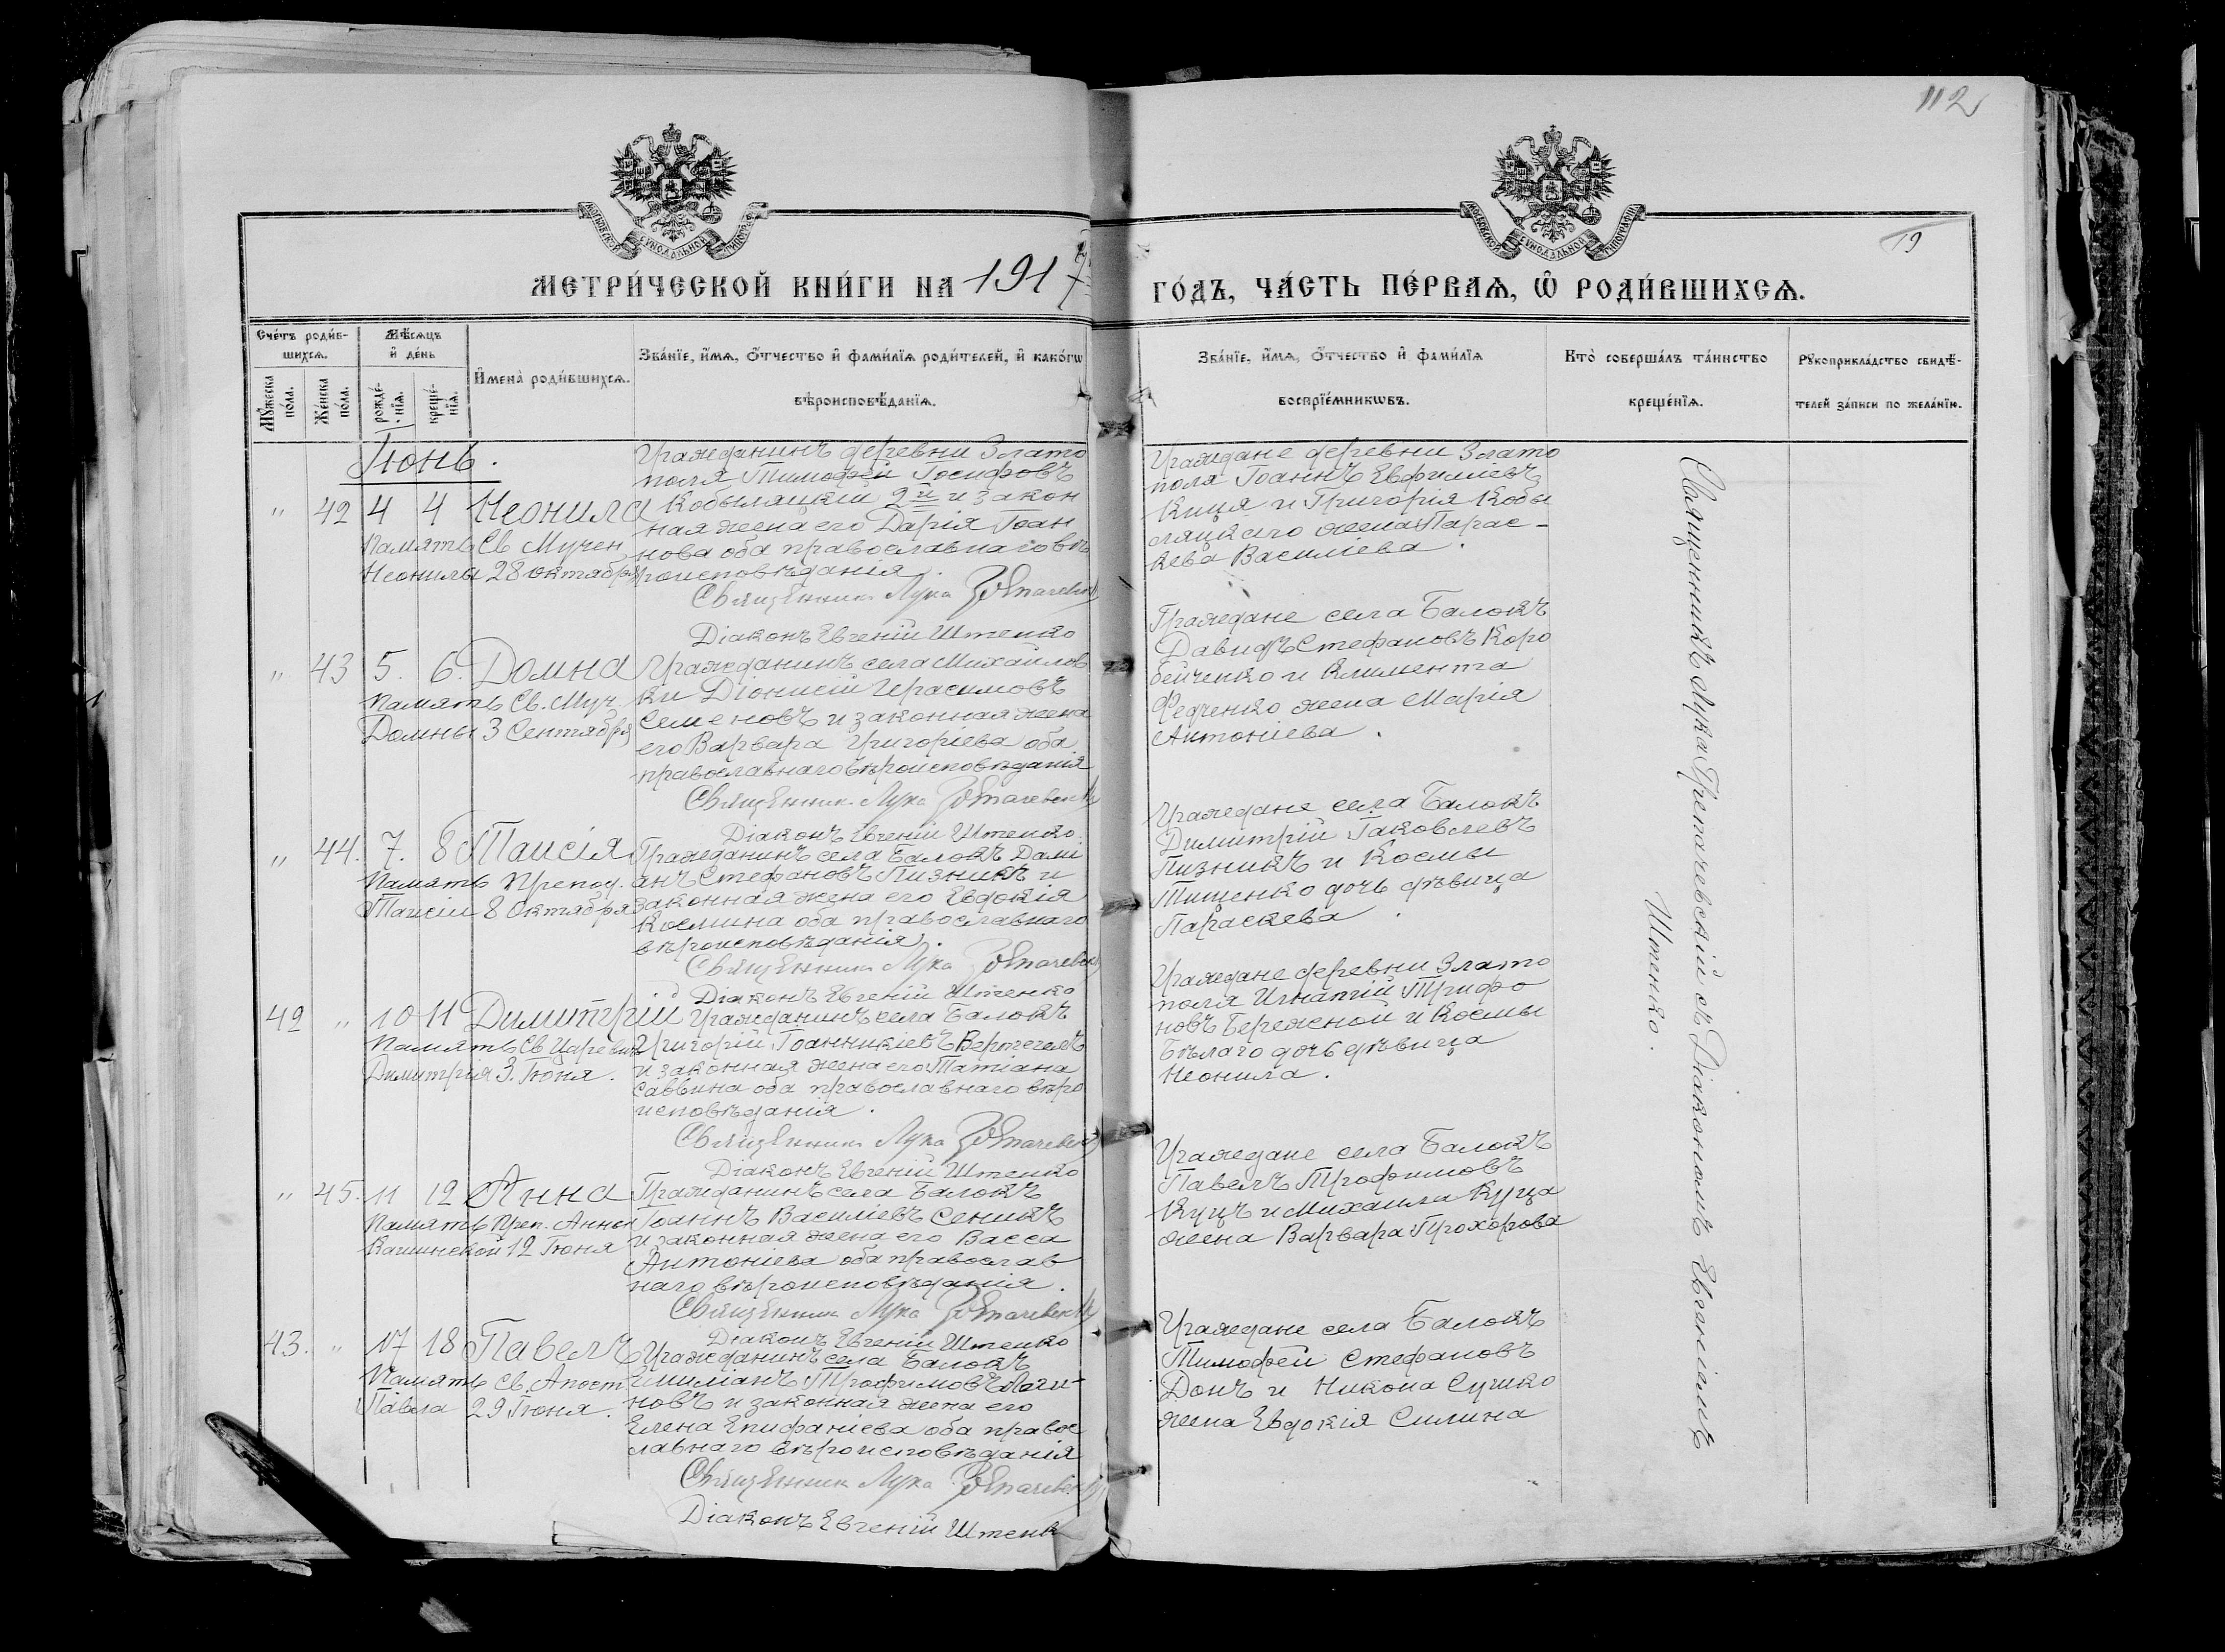 112
19
МЕТРИ́ЧЕСКОЙ КНИ́ГИ НА 1917
ГО́ДЪ, ЧА́СТЬ ПЕ́РВАѦ, Ѽ РОДИ́ВШИХСѦ.
Сче́тъ роди́в-
шихсѧ.
Мꙋ́жеска по́ла.
Же́нска по́ла.
Мѣ́сѧцъ
и҆ де́нь
рожде́-
нїѧ.
креще́-
нїѧ.
И҆мена̀ роди́вшихсѧ.
Зва́нїе, и҆́мѧ, ѻ҆́тчество и҆ фами́лїѧ роди́телей, и҆ како́гѡ
вѣроисповѣ́данїѧ.
Зва́нїе, и҆́мѧ, ѻ҆́тчество и҆ фами́лїѧ
воспрїе́мникѡвъ.
Кто̀ соверша́лъ та́инство
креще́нїѧ.
Рꙋкоприкла́дство свидѣ́-
телей за́писи по жела́нїю.
Іюнь.
" 42 4 4 Неонила
Память Св Мучен.
Неонилы 28 октября
Гражданинъ деревни Злато
поля Тимофей Іосифовъ
Кобыляцкій 2й и закон
ная жена его Дарія Іоан
нова оба православнаго вѣ
роисповѣданія.
Священникъ Лука
Діаконъ Евгеній Штенко
Граждане деревни Злато
поля Іоаннъ Евфиміевъ
Куця и Григорія Кобы
ляцкаго жена Парас-
кева Василіева.
" 43 5. 6. Домна
Память Св. Муч.
Домны 3 Сентября
Гражданинъ села Михайлов
ки Діонисій Герасимовъ
Семеновъ и законная жена
его Варвара Григоріева оба
православнаго вѣроисповѣданія
Священникъ Лука
Діаконъ Евгеній Штенко
Граждане села Балокъ
Давидъ Стефановъ Коро
бейченко и Климента
Федченко жена Марія
Антоніева.
" 44. 7. 8 Таисія
Память Препод.
Таисіи 8 Октября
Гражданинъ села Балокъ Домі
анъ Стефановъ Пизникъ и
законная жена его Евдокія
Космина оба православнаго
вѣроисповѣданія.
Священникъ Лука
Діаконъ Евгеній Штенко
Граждане села Балокъ
Димитрій Іаковлевъ
Пизникъ и Космы
Тищенко дочь дѣвица
Параскева.
42 " 10 11 Димитрій
Память Св Царевич
Димитрія 3. Іюня.
Гражданинъ села Балокъ
Григорій Іоанникіевъ Вертегелъ
и законная жена его Татіана
Саввина оба православнаго вѣро
исповѣданія.
Священникъ Лука
Діаконъ Евгеній Штенко
Граждане деревни Злато
поля Игнатій Трифо
новъ Бережной и Космы
Бѣлаго дочь дѣвица
Неонила.
" 45. 11 12 Анна
Память Преп. Анны
Кашинской 12 Іюня
Гражданинъ села Балокъ
Іоаннъ Василіевъ Сеникъ
и законная жена его Васса
Антоніева оба православ
наго вѣроисповѣданія.
Священникъ Лука
Діаконъ Евгеній Штенко
Граждане села Балокъ
Павелъ Трофимовъ
Куцъ и Михаила Куца
жена Варвара Прохорова
43. " 17 18 Павелъ
Память Св. Апост.
Павла 29 Іюня.
Гражданинъ села Балокъ
Емиліанъ Трофимовъ Логи-
новъ и законная жена его
Елена Епифаніева оба правос
лавнаго вѣроисповѣданія
Священникъ Лука
Діаконъ Евгеній Штенк
Граждане села Балокъ
Тимофей Стефановъ
Донъ и Никона Сушко
жена Евдокія Силина
Священникъ Лука Трепачевскій съ Діакономъ Евгеніемъ
Штенко.